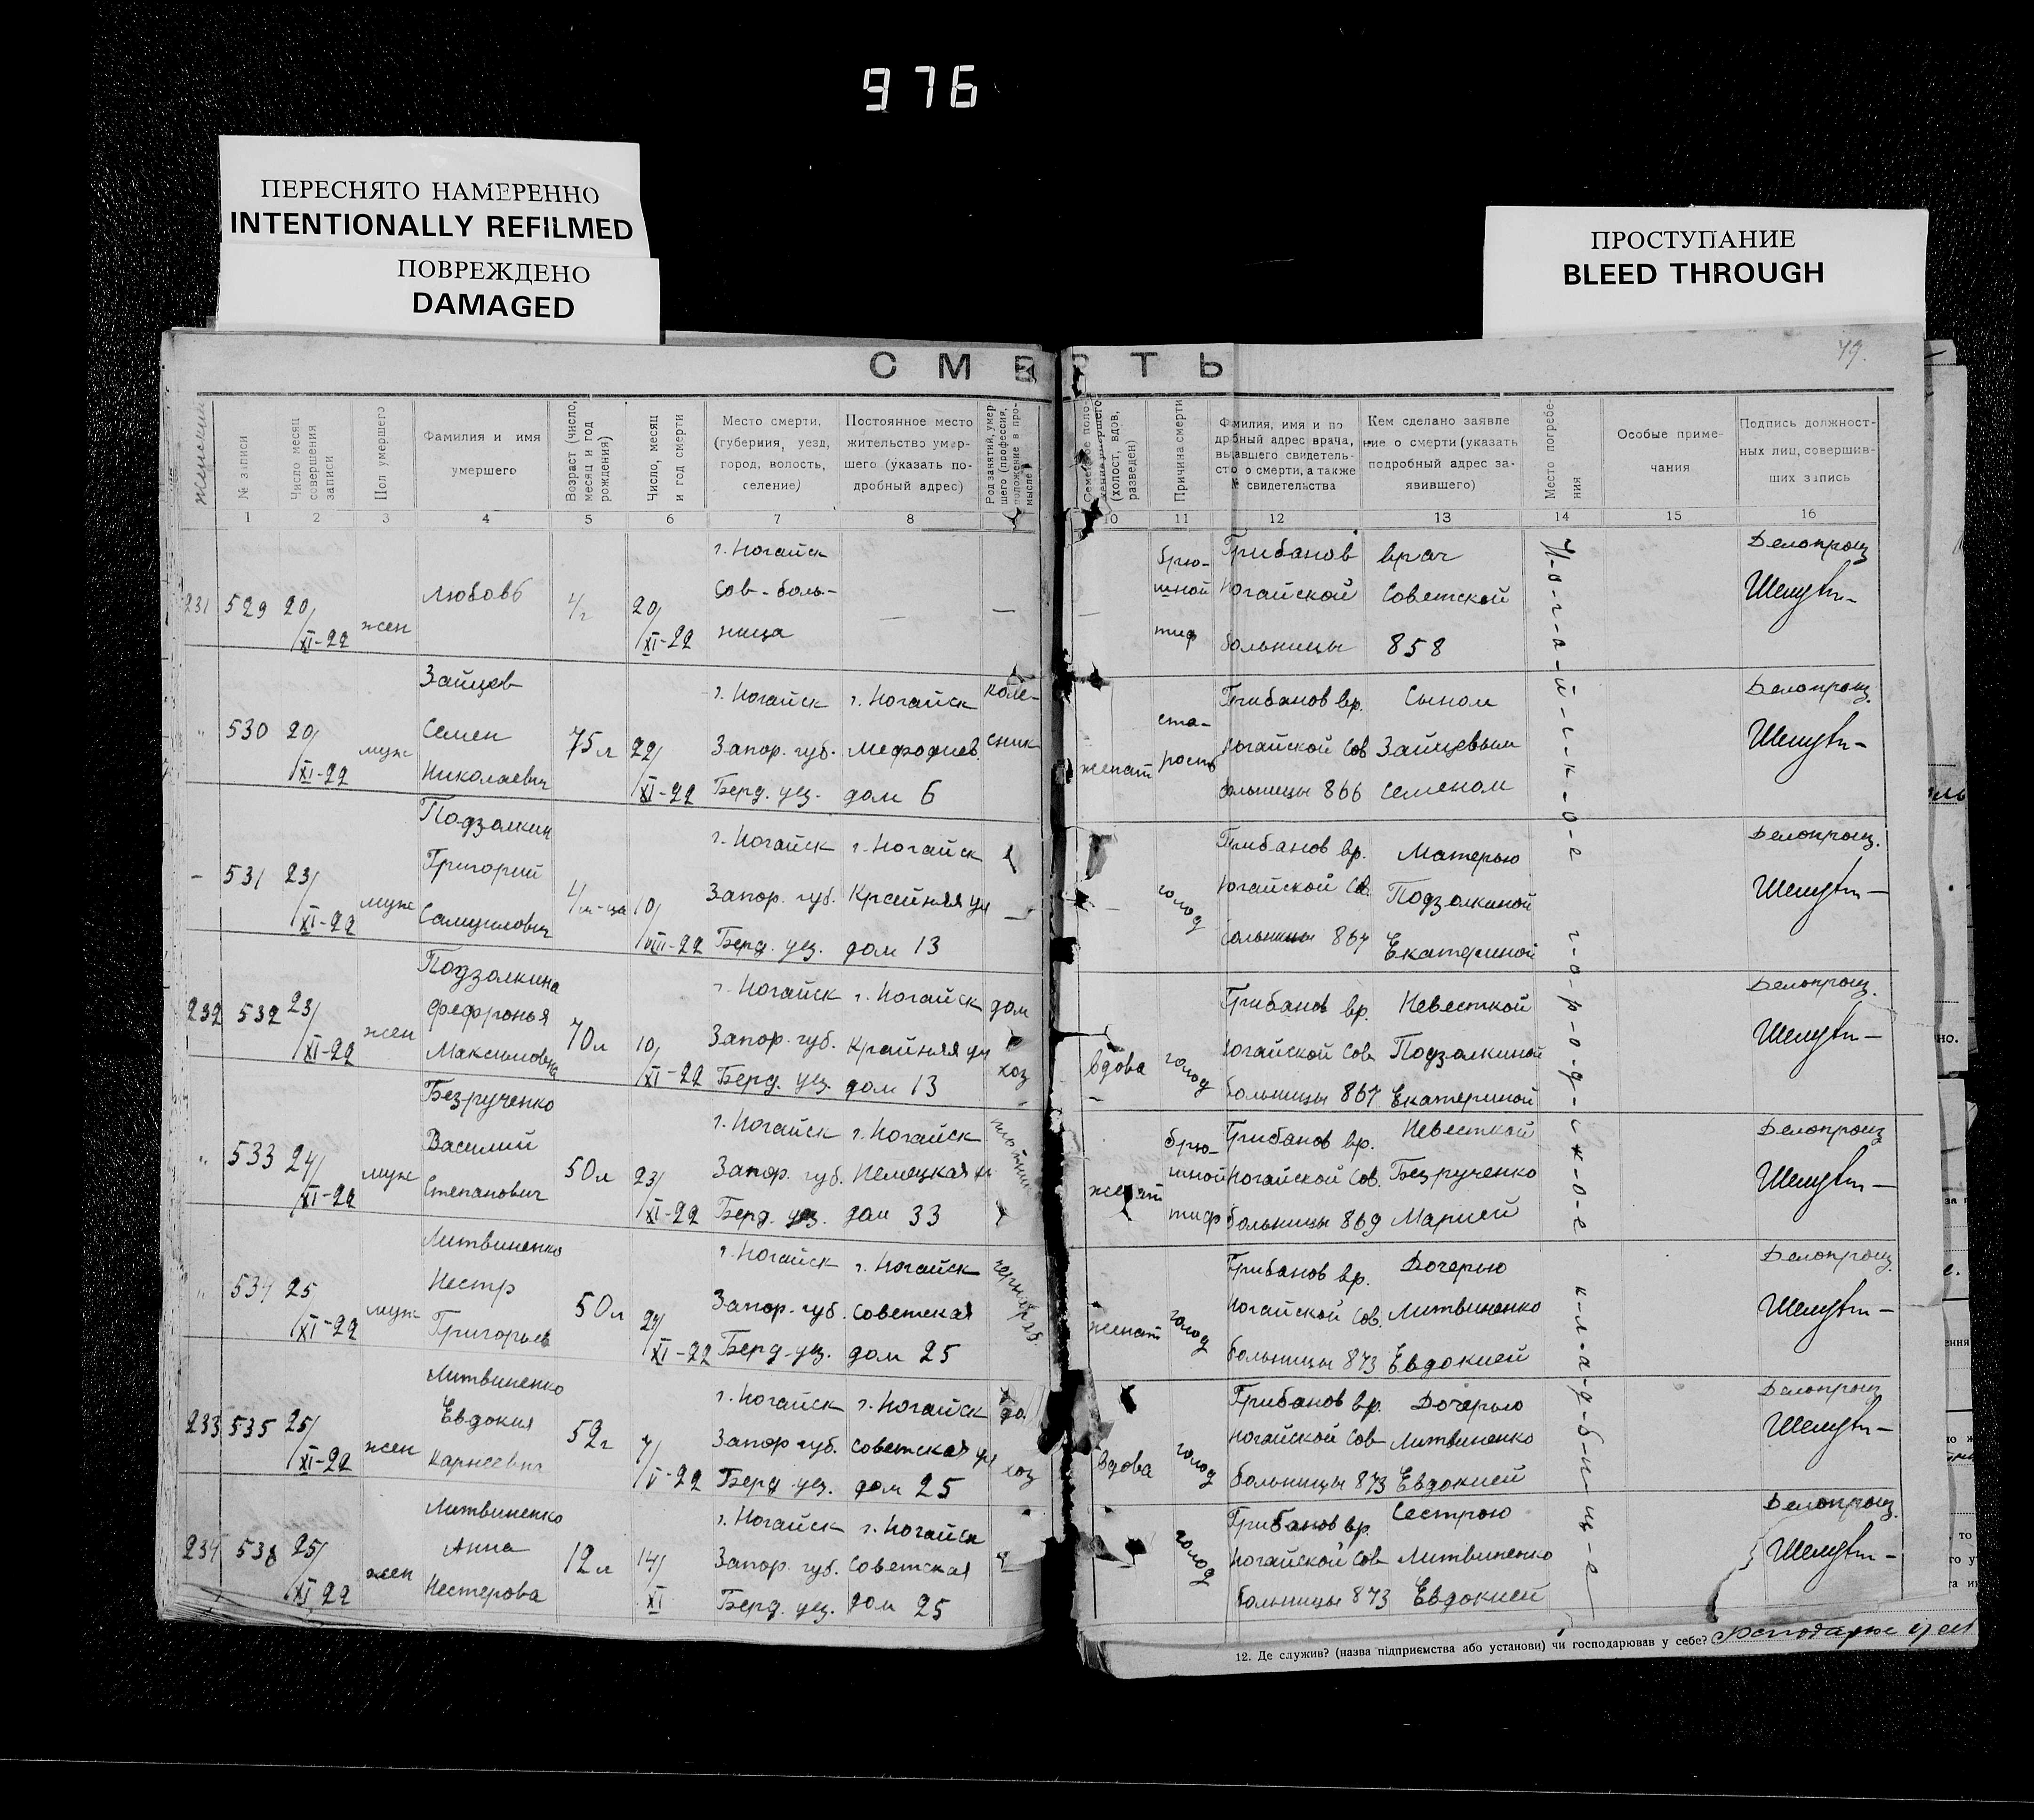 976
ПЕРЕСНЯТО НАМЕРЕННО
INTENTIONALLY REFILMED
ПОВРЕЖДЕНО
DAMAGED
ПРОСТУПАНИЕ
BLEED THROUGH
СМЕРТЬ
49.
женский
№ записи
Число месяц совершения записи
Пол умершего
Фамилия и имя
умершего
Возраст (число, месяц и год рождения)
Число, месяц и год смерти
Место смерти,
(губерния, уезд,
город, волость,
селение)
Постоянное место
жительство умер-
шего (указать по-
дробный адрес)
Род занятий, умер
шего (профессия,
положение в про-
мысле)
(холост, вдов, разведен)
Причина смерти
Фамилия, имя и по
дробный адрес врача,
выдавшего свидетель-
ство о смерти, а также
№ свидетельства
Кем сделано заявле
ние о смерти (указать
подробный адрес за-
явившего)
Место погребе-
ния
Особые приме-
чания
Подпись должност-
ных лиц, совершив-
ших запись
1 2 3 4 5 6 7 8 10 11 12 13 14 15 16
231 529 20/XI-22 жен
Любовь
4/г
20/XI-22
г. Ногайск
Сов-боль-
ница
— — —
брю-
шной
тиф
Грибанов
Ногайской
больницы
врач
Советской
858
Делопроиз
" 530 20/XI-22 муж
Зайцев
Семен
Николаевич
75 л
22/XI-22
г. Ногайск
Запор. губ.
Берд. уез.
г. Ногайск
Мефодиев.
дом 6
женат
ста-
рость
Грибанов вр.
Ногайской Сов
больницы 866
Сыном
Зайцевым
Семеном
Делопроиз.
- 531 23/XI-22 муж
Подзолкин
Григорий
Самуилович
4/м-ца
10/VIII-22
г. Ногайск
Запор. губ.
Берд. уез.
г. Ногайск
Крайняя ул
дом 13
—
голод
Грибанов вр.
Ногайской Сов.
больницы 867
Матерью
Подзолкиной
Екатериной
Делопроиз.
232 532 23/XI-22 жен
Подзолкина
Феффонья
Максимовна
70 л
10/XI-22
г. Ногайск
Запор. губ.
Берд. уез.
г. Ногайск
Крайняя ул
дом 13
дом
хоз
вдова
голод
Грибанов вр.
Ногайской Сов
больницы 867
Невесткой
Подзолкиной
Екатериной
Делопроиз.
" 533 24/XI-22 муж
Безрученко
Василий
Степанович
50 л
23/XI-22
г. Ногайск
Запор. губ.
Берд. уез.
г. Ногайск
Немецкая
дом 33
женат
брю-
шной
тиф
Грибанов вр.
Ногайской Сов.
больницы 869
Невесткой
Безрученко
Марией
Делопроиз
" 534 25/XI-22 муж
Литвиненко
Нестр
Григорьев
50 л
24/XI-22
г. Ногайск
Запор. губ.
Берд. уез.
г. Ногайск
Советская
дом 25
женат
голод
Грибанов вр.
Ногайской Сов.
больницы 873
Дочерью
Литвиненко
Евдокией
Делопроиз.
233 535 25/XI-22 жен
Литвиненко
Евдокия
Карнеевна
52 г
7/V-22
г. Ногайск
Запор губ.
Берд. уез.
г. Ногайск
Советская ул
дом 25
хоз
вдова
голод
Грибанов вр.
Ногайской Сов
больницы 873
Дочерью
Литвиненко
Евдокией
Делопроиз
234 536 25/XI 22 жен
Литвиненко
Анна
Нестерова
12 л
14/XI
г. Ногайск
Запор. губ.
Берд. уез.
г. Ногайск
Советская
дом 25
голод
Грибанов вр.
Ногайской Сов
больницы 873
Сестрою
Литвиненко
Евдокией
Делопроиз.
Н-о-г-а-й-с-к-о-е г-о-р-о-д-с-к-о-е к-л-а-д-б-и-щ-е
12. Де служив? (назва підприємства або установи) чи господарював у себе?